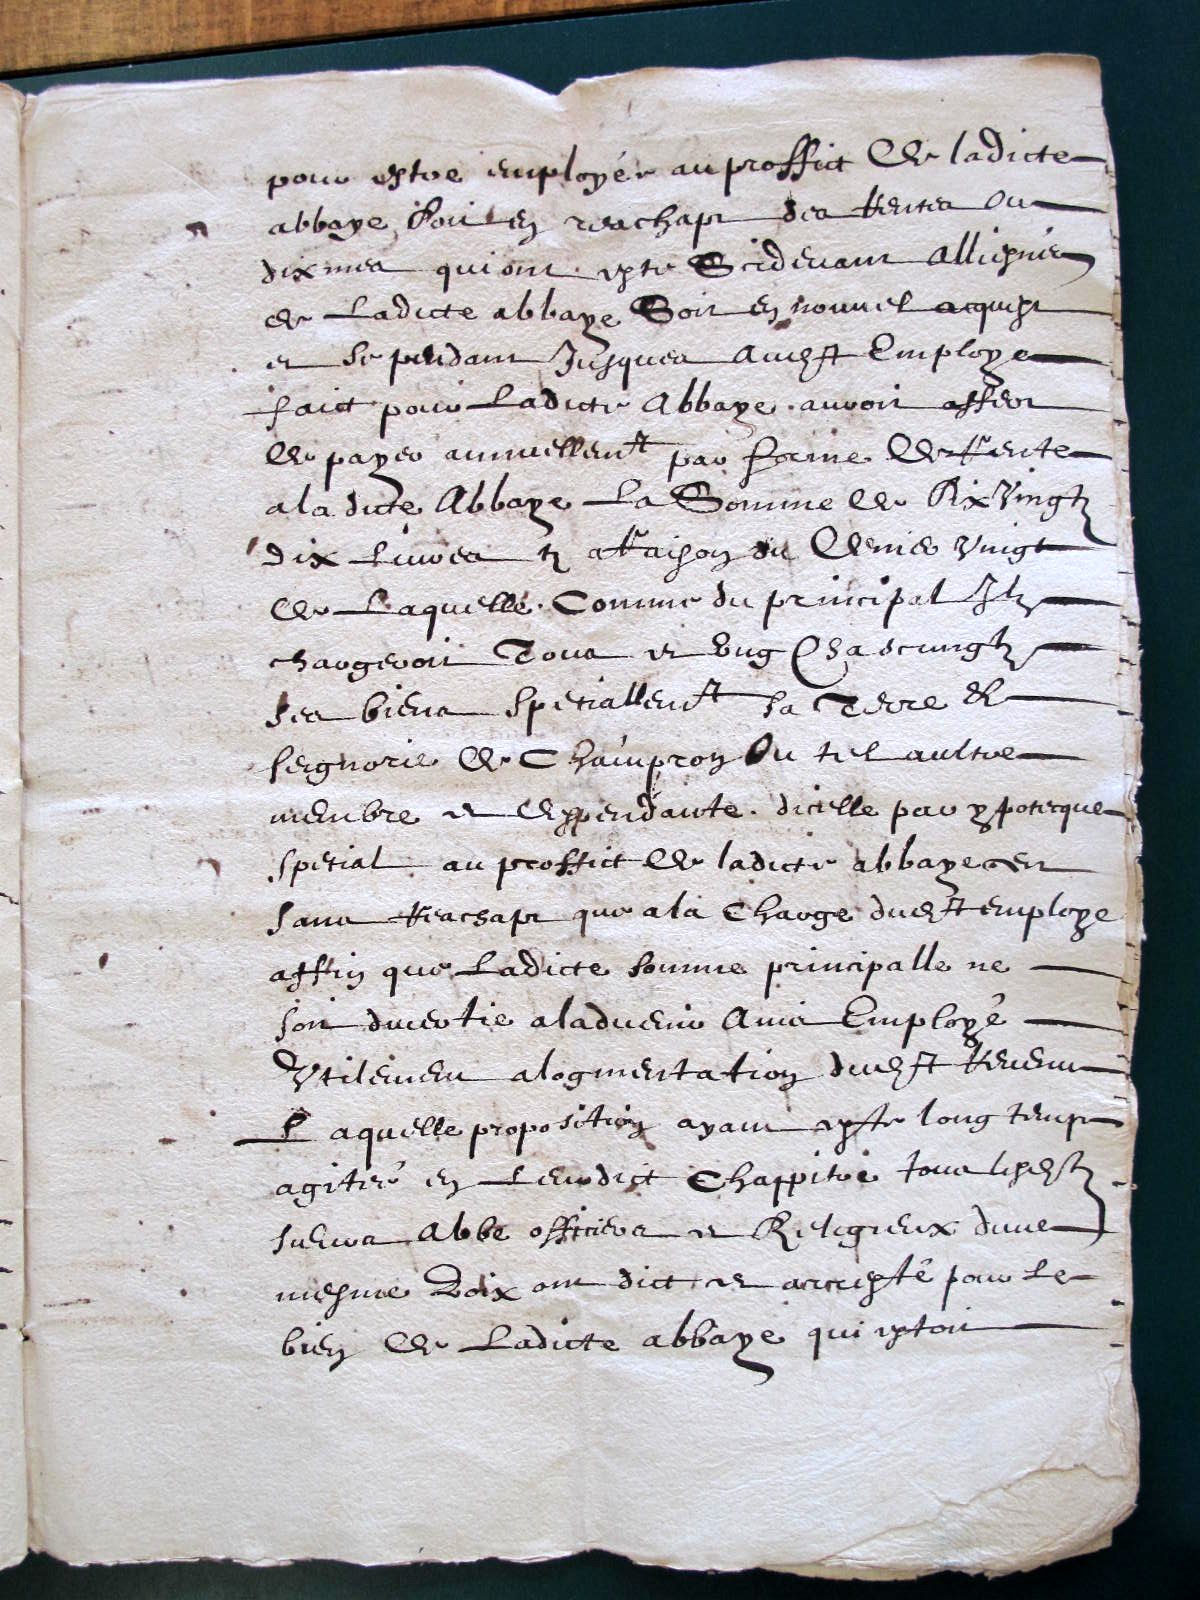 pour estre employée au proffict de ladicte
abbaye Soit en reachapt des Rentes ou
dixmes qui ont este Scidevant alliesnée
de Ladicte abbaye Soit en nouvel acquist
et Se pendant Jusques audit Employe
faict pour Ladicte Abbaye avoir
de payer annuellemt par forme de Rente
a la dicte Abbaye La Somme de Six Vingtz
dix Livres tz a Raison du denier vingt
de Laquelle Comme du principal Ilz
chargeroit Tous et ung Chascungtz
ses biens Spetiallemt sa Terre et
seignorie de Champron Ou tel aultre
membre et deppendante dicelle par ypotecque
spetial au proffict de ladicte abbaye
sans Reachapt que a la Charge dudt employe
affin que Ladicte somme principalle ne
soit divertie aladvenir Ains Employé
Utilement alogmentation dudt Revenu
Laquelle proposition ayant este long temps
agitée en Leurdict Chappitre tous lesdtz
sieurs Abbé officiers et Religieux dune
mesme Voix ont dict et accepté pour Le
bien de Ladicte abbaye qui estoit